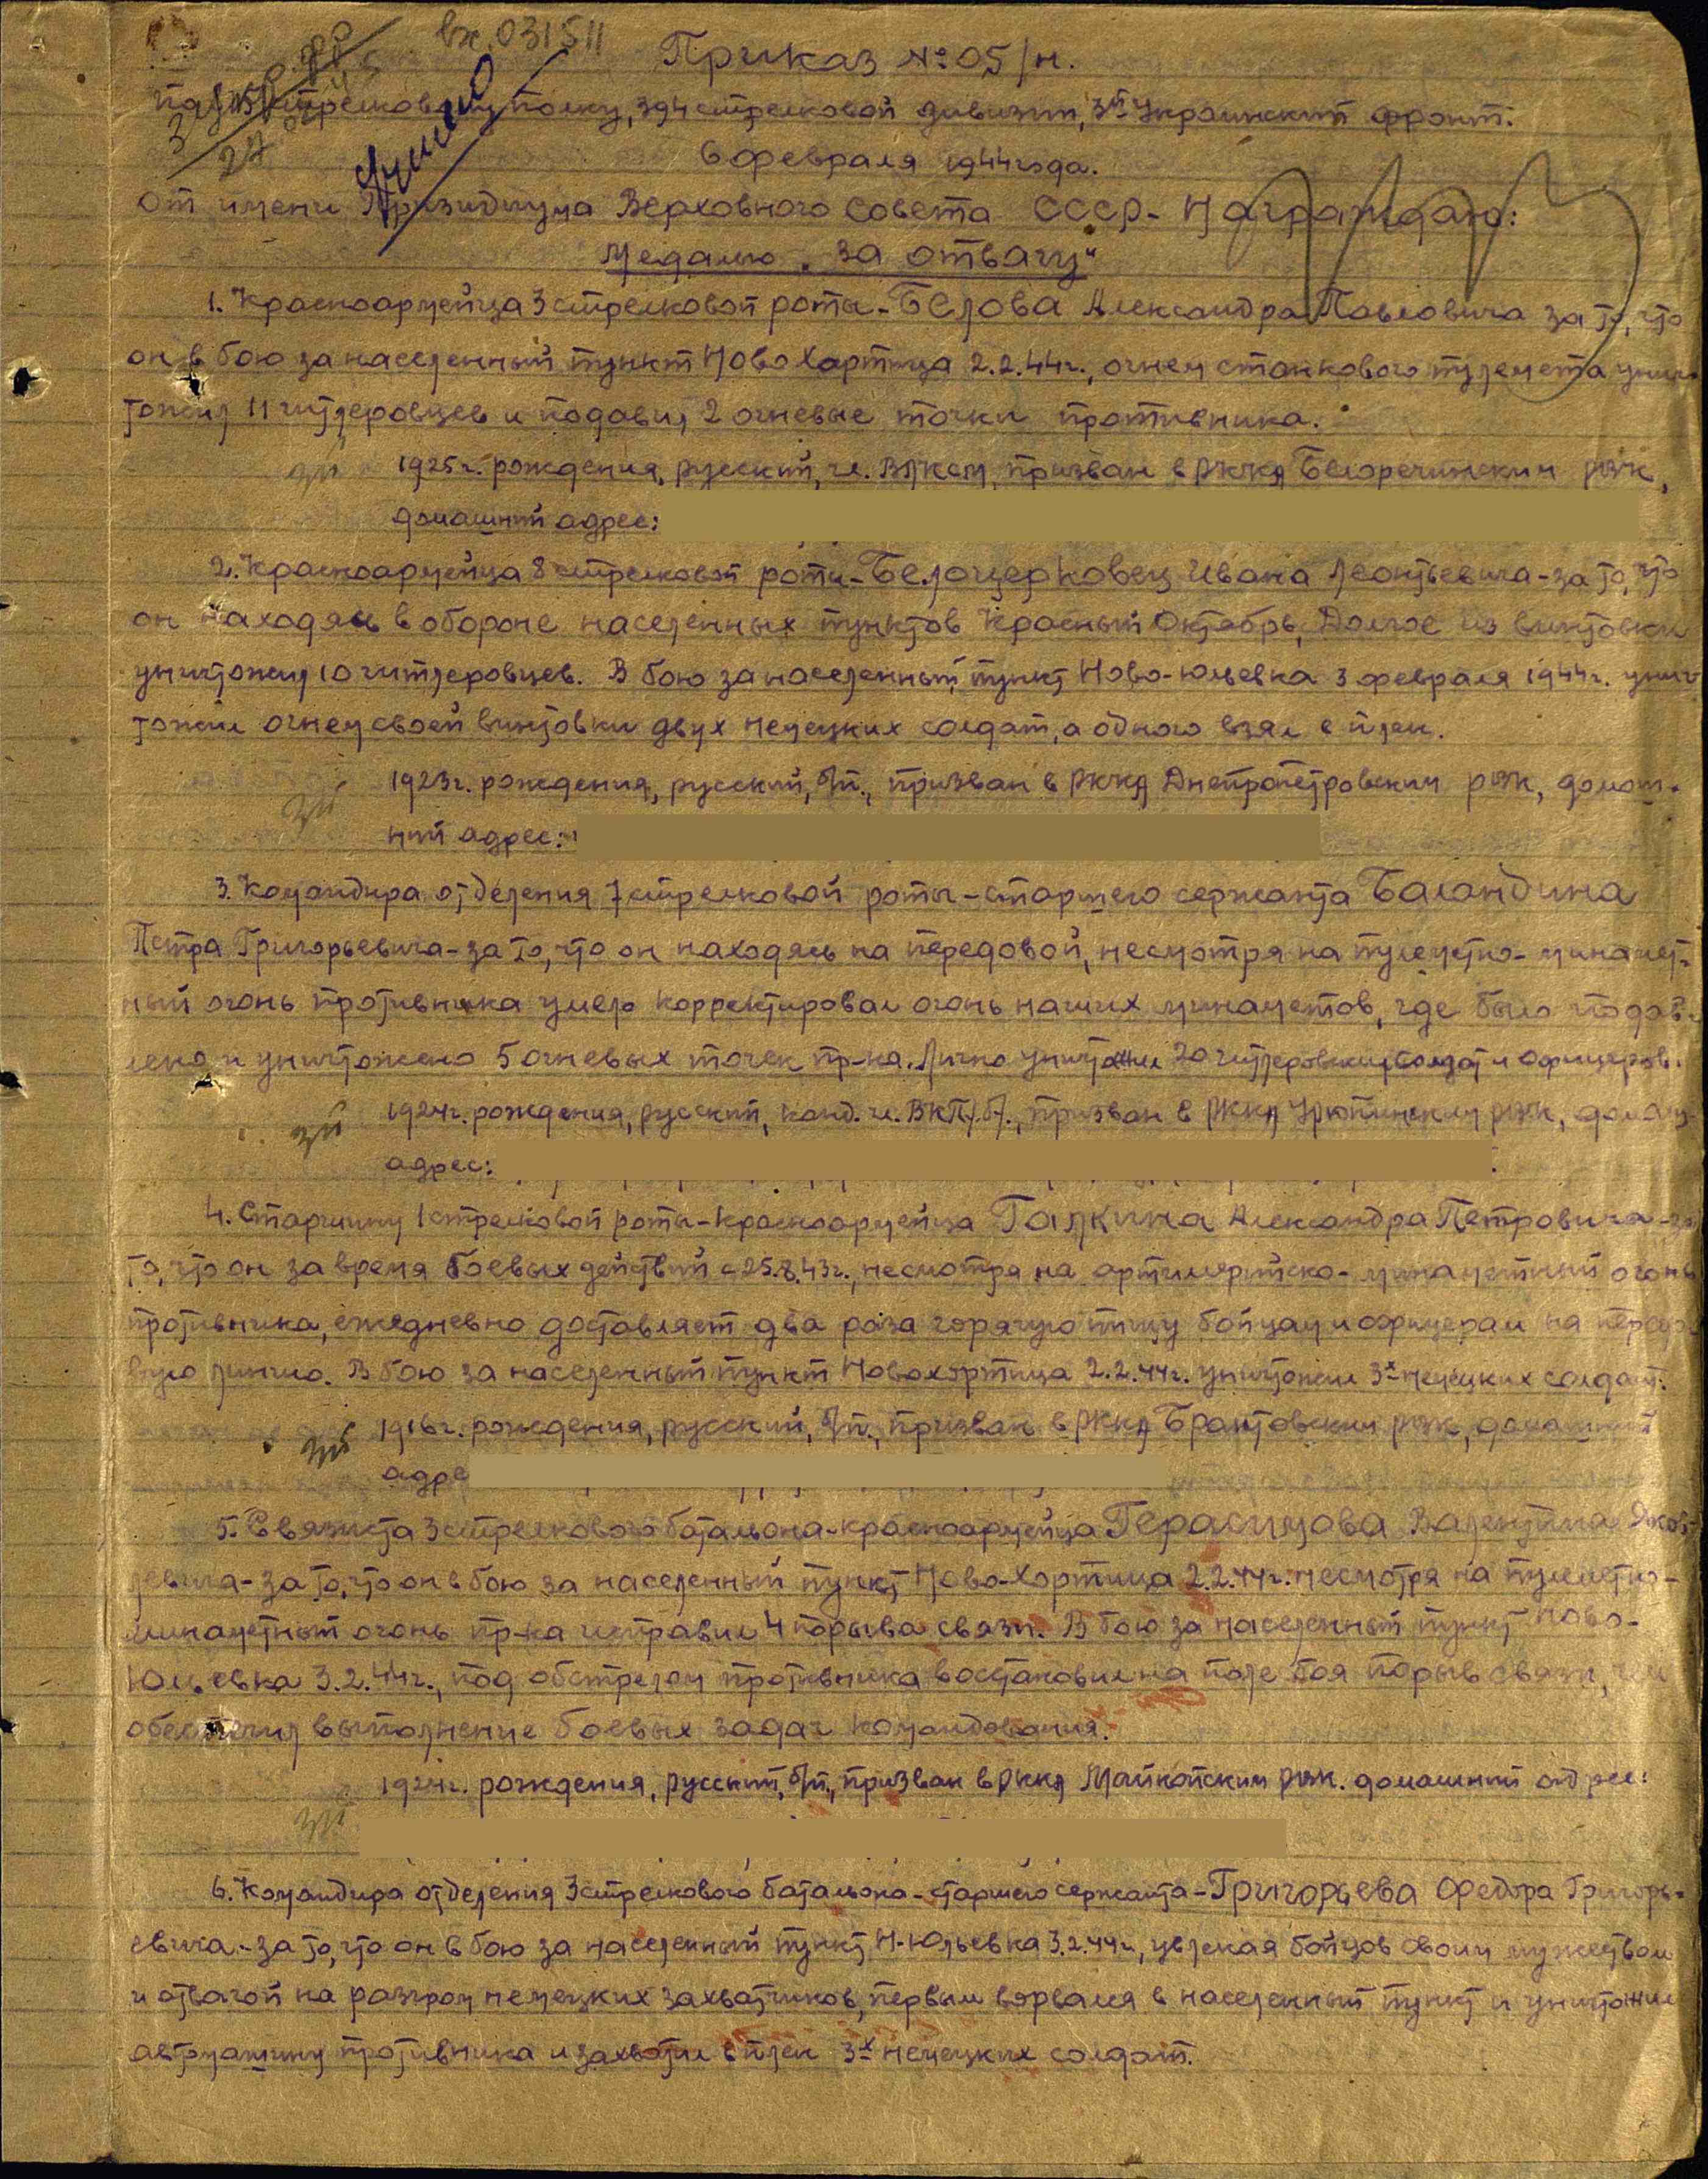 вх. 031511
Приказ № 05/н.
по стрелковому полку, 394 стрелковой дивизии, 3й Украинский фронт.
6 февраля 1944 года.
От имени Президиума Верховного Совета СССР - Награждаю:
Медалью „За отвагу“
1. Красноармейца 3 стрелковой роты - Белова Александра Павловича за то, что
он в бою за населенный пункт Ново Хортица 2.2.44г., огнем станкового пулемета унич
тожил 11 гитлеровцев и подавил 2 огневые точки противника.
1925г. рождения, русский, чл. ВЛКСМ, призван в РККА Белореченским РВК,
домашний адрес:
2. Красноармейца 8 стрелковой роты - Белоцерковец Ивана Леонтьевича - за то, что
он находясь в обороне населенных пунктов Красный Октябрь, Долгое из винтовки
уничтожил 10 гитлеровцев. В бою за населенный пункт Ново-Юльевка 3 февраля 1944г. унич
тожил огнем своей винтовки двух немецких солдат, а одного взял в плен.
1923г. рождения, русский, б/п., призван в РККА Днепропетровским РВК, домаш-
ний адрес:
3. Командира отделения 7 стрелковой роты - старшего сержанта Баландина
Петра Григорьевича - за то, что он находясь на передовой, несмотря на пулеметно-минамет-
ный огонь противника умело корректировал огонь наших минаметов, где было подав-
лено и уничтожено 5 огневых точек пр-ка. Лично уничтожил 20 гитлеровских солдат и офицеров.
1924г. рождения, русский, канд. чл. ВКП/б/., призван в РККА Урюпинским РВК, домаш.
адрес:
4. Старшину 1 стрелковой роты - красноармейца Галкина Александра Петровича - за
то, что он за время боевых действий с 25.8.43г., несмотря на артиллерийско-минаметный огонь
противника, ежедневно доставляет два раза горячую пищу бойцам и офицерам на передо
вую линию. В бою за населенный пункт Новохортица 2.2.44г. уничтожил 3х немецких солдат.
1916г. рождения, русский, б/п., призван в РККА Брантовским РВК, домашний
адре
5. Связиста 3 стрелкового батальона - красноармейца Герасимова Валентина Яков-
левича - за то, что он в бою за населенный пункт Ново-Хортица 2.2.44г. несмотря на пулеметно-
минаметный огонь пр-ка исправил 4 порыва связи. В бою за населенный пункт Ново-
Юльевка 3.2.44г., под обстрелом противника востановил на поле боя порыв связи, чем
обеспечил выполнение боевых задач командования.
1924г. рождения, русский, б/п., призван в РККА Майкопским РВК. домашний адрес:
6. Командира отделения 3 стрелкового батальона - старшего сержанта - Григорьева Федора Григорь-
евича - за то, что он в бою за населенный пункт Н-Юльевка 3.2.44г., увлекая бойцов своим мужеством
и отвагой на разгром немецких захватчиков, первым ворвался в населенный пункт и уничтожил
автомашину противника и захватил в плен 3х немецких солдат.